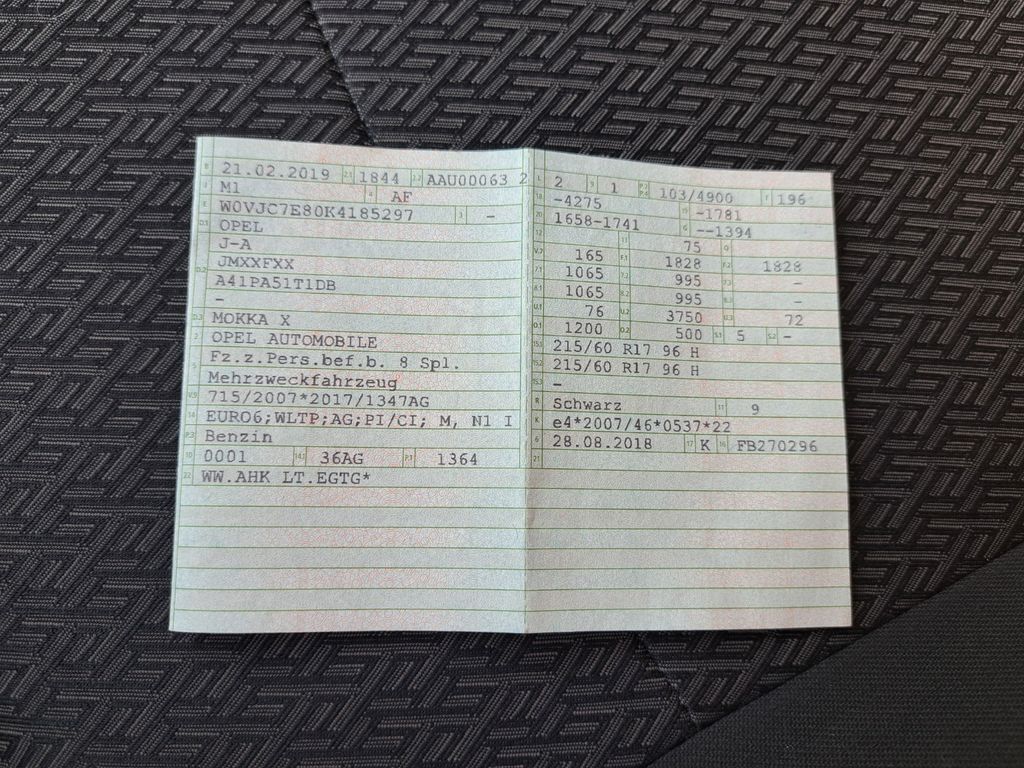 B 21.02.2019 2.1 1844 2.2 AAU00063 2
J M1 4 AF
E W0VJC7E80K4185297 3 -
D.1 OPEL
J-A
D.2 JMXXFXX
A41PA51T1DB
-
D.3 MOKKA X
2 OPEL AUTOMOBILE
5 Fz.z.Pers.bef.b. 8 Spl.
Mehrzweckfahrzeug
V.9 715/2007*2017/1347AG
14 EURO6;WLTP;AG;PI/CI; M, N1 I
P.3 Benzin
10 0001 14.1 36AG P.1 1364
22 WW.AHK LT.EGTG*
L 2 9 1 P.2 P.4 103/4900 T 196
18 -4275 19 -1781
20 1658-1741 G --1394
12 13 75 Q
V.7 165 F.1 1828 F.2 1828
7.1 1065 7.2 995 7.3 -
8.1 1065 8.2 995 8.3 -
U.1 76 U.2 3750 U.3 72
O.1 1200 O.2 500 S.1 5 S.2 -
15.1 215/60 R17 96 H
15.2 215/60 R17 96 H
15.3 -
R Schwarz 11 9
K e4*2007/46*0537*22
6 28.08.2018 17 K 16 FB270296
21